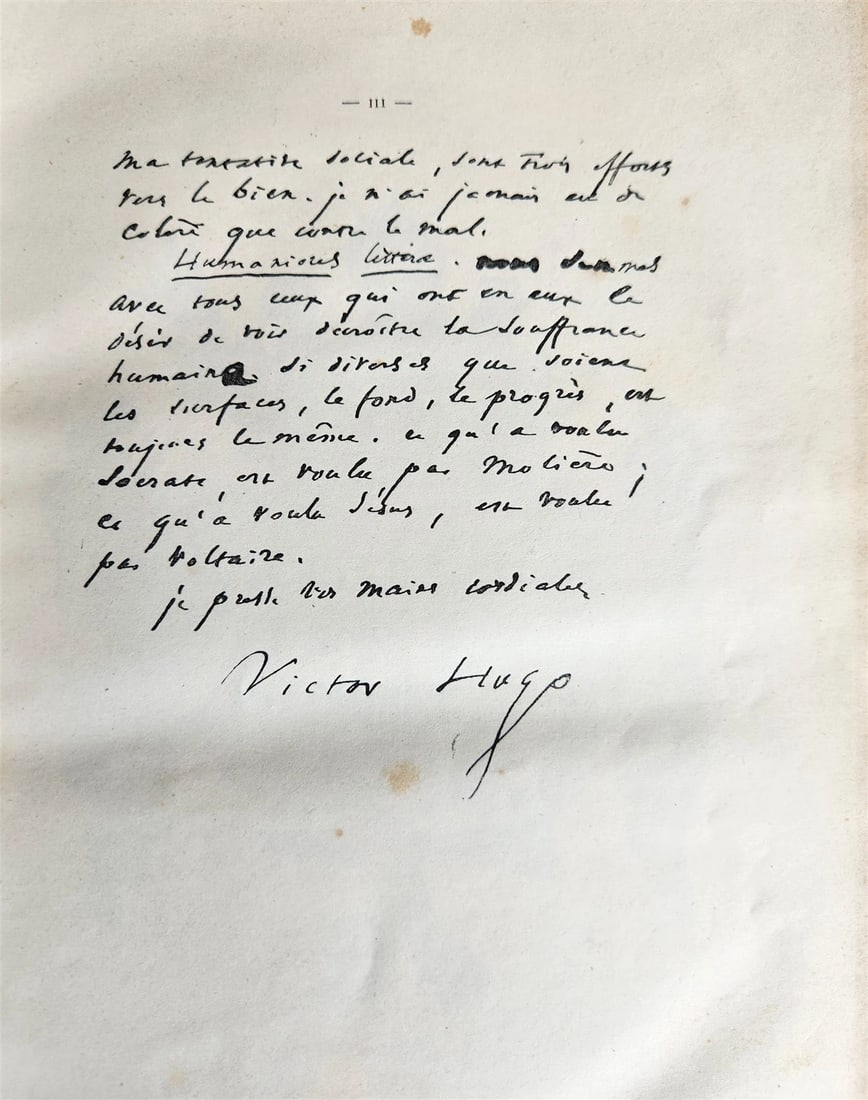 — III —
ma tentative sociale, sont trois efforts
vers le bien. je n'ai jamais eu de
colère que contre le mal.
Humaniores litteræ. nous sommes
avec tous ceux qui ont en eux le
désir de voir décroître la souffrance
humaine. Si diverses que soient
les surfaces, le fond, le progrès, est
toujours le même. ce qu'a voulu
Socrate, est voulu par Molière ;
ce qu'a voulu Jésus, est voulu
par Voltaire.
je presse vos mains cordiales.
Victor Hugo